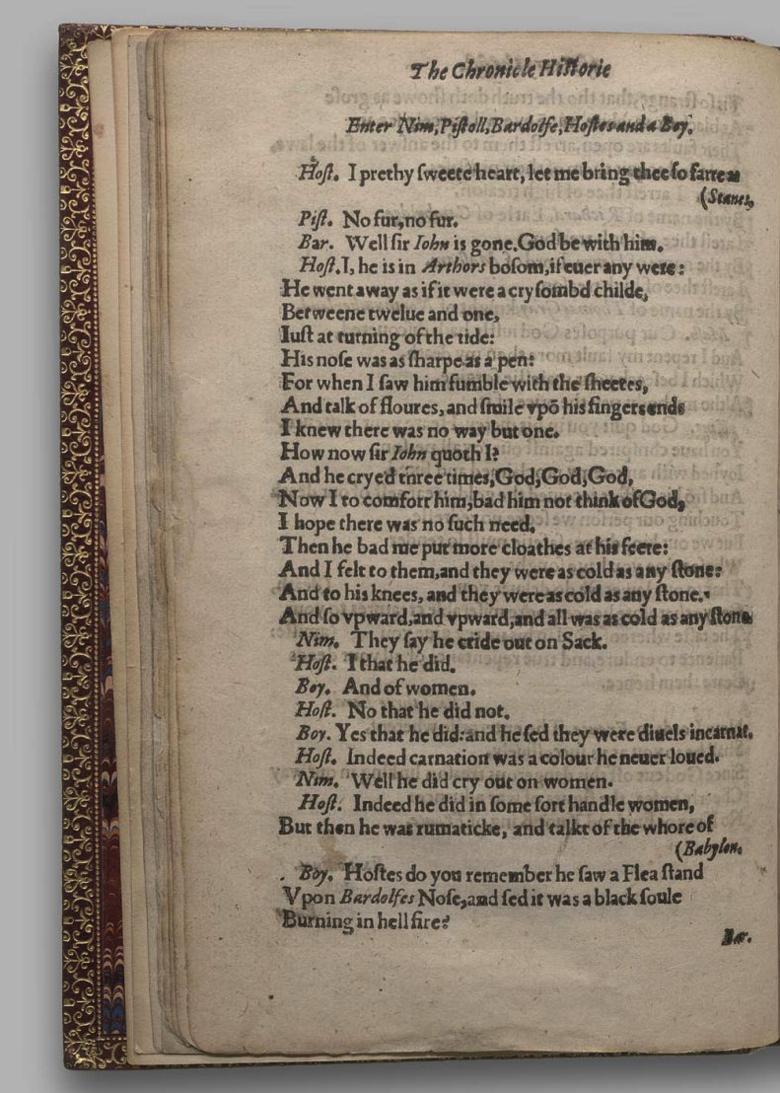 The Chronicle Hiſtorie
Enter Nim, Piſtoll, Bardolfe, Hoſtes and a Boy.
Hoſt. I prethy ſweete heart, let me bring thee ſo farre as
(Stanes,
Piſt. No fur, no fur.
Bar. Well ſir Iohn is gone. God be with him.
Hoſt. I, he is in Arthors boſom, if euer any were:
He went away as if it were a cryſombd childe,
Betweene twelue and one,
Iuſt at turning of the tide:
His noſe was as ſharpe as a pen:
For when I ſaw him fumble with the ſheetes,
And talk of floures, and ſmile vpō his fingers ends
I knew there was no way but one.
How now ſir Iohn quoth I?
And he cryed three times, God, God, God,
Now I to comfort him, bad him not think of God,
I hope there was no ſuch need.
Then he bad me put more cloathes at his feete:
And I felt to them, and they were as cold as any ſtone:
And to his knees, and they were as cold as any ſtone.
And ſo vpward, and vpward, and all was as cold as any ſtone.
Nim. They ſay he cride out on Sack.
Hoſt. I that he did.
Boy. And of women.
Hoſt. No that he did not.
Boy. Yes that he did: and he ſed they were diuels incarnat.
Hoſt. Indeed carnation was a colour he neuer loued.
Nim. Well he did cry out on women.
Hoſt. Indeed he did in ſome ſort handle women,
But then he was rumaticke, and talkt of the whore of
(Babylon.
Boy. Hoſtes do you remember he ſaw a Flea ſtand
Vpon Bardolfes Noſe, and ſed it was a black ſoule
Burning in hell fire?
Bar.